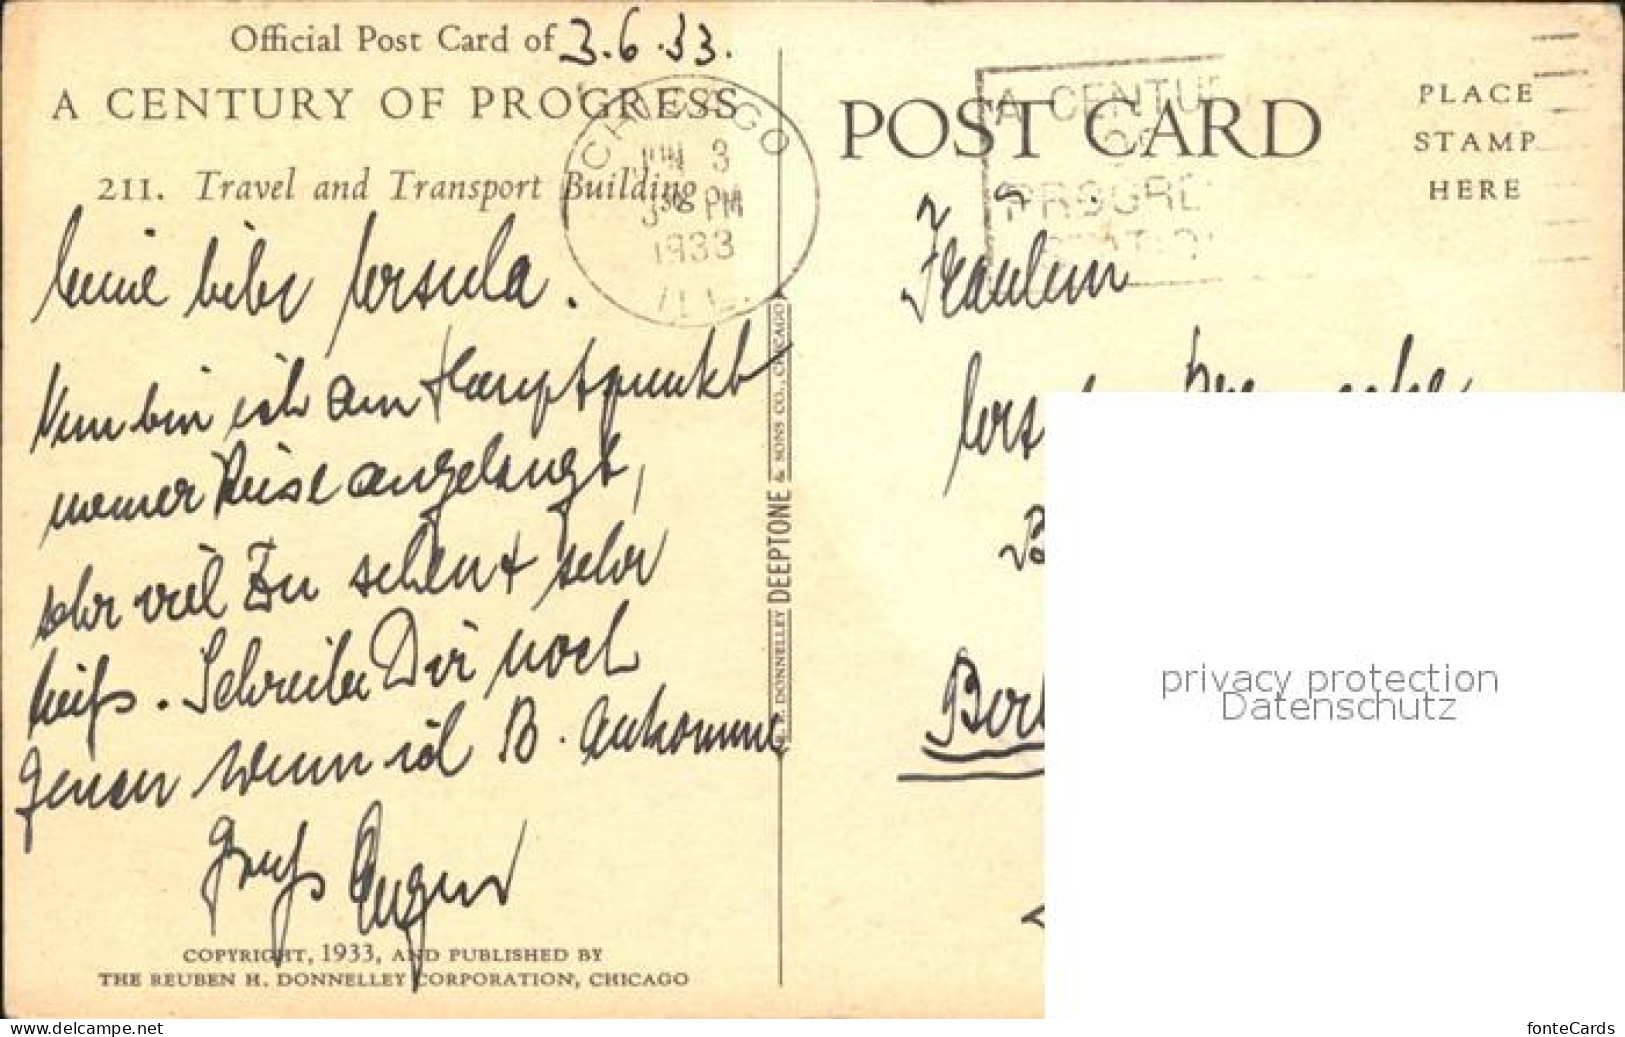 Official Post Card of 3.6.33.
A CENTURY OF PROGRESS
211. Travel and Transport Building
CHICAGO
JUN 3
PM
1933
ILL.
Meine liebe Ursula.
Nun bin ich am Hauptpunkt
meiner Reise angelangt,
sehr viel zu sehen + sehr
heiß. Schreibe Dir noch
genau wenn ich B. ankomme
Gruß August
COPYRIGHT, 1933, AND PUBLISHED BY
THE REUBEN H. DONNELLEY CORPORATION, CHICAGO
R. R. DONNELLEY DEEPTONE & SONS CO., CHICAGO
POST CARD
A CENTU
OF
PROGRE
PLACE
STAMP
HERE
Fräulein
Berl
privacy protection
Datenschutz
www.delcampe.net
fonteCards